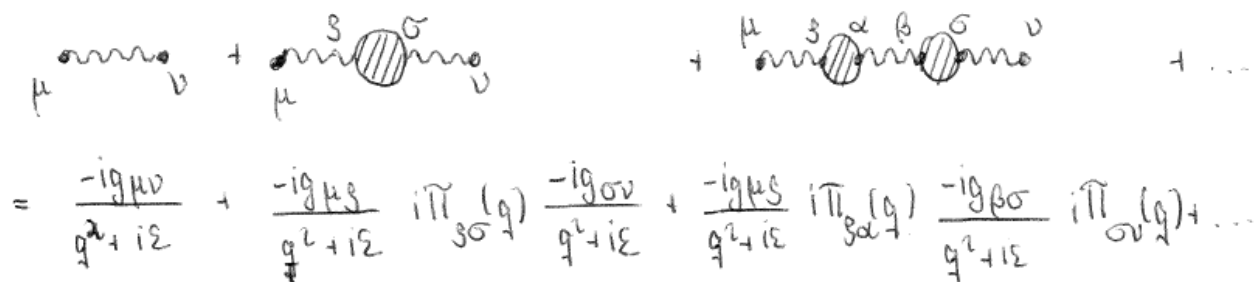 μ ν + μ ρ σ ν + μ ρ α β σ ν + ...
= \frac{-ig_{μν}}{q^2+iε} + \frac{-ig_{μρ}}{q^2+iε} iΠ_{ρσ}(q) \frac{-ig_{σν}}{q^2+iε} + \frac{-ig_{μρ}}{q^2+iε} iΠ_{ρα}(q) \frac{-ig_{βσ}}{q^2+iε} iΠ_{σν}(q) + ...